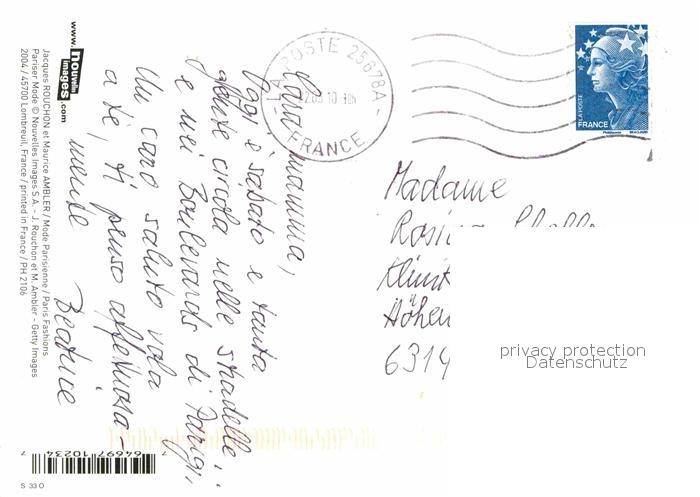 Cara mamma,
Oggi è sabato e tanta
gente circola nelle stradelle
e nei Boulevards di Parigi,
Un caro saluto vola
a te, ti penso affettuosa-
mente Beatrice
Madame
6314
LA POSTE 25678A
FRANCE
LA POSTE
FRANCE
Phil@poste BEAUJARD
www.nouvelles
images.com
Jacques ROUCHON et Maurice AMBLER / Mode Parisienne / Paris Fashions
Pariser Mode © Nouvelles Images S.A. - J. Rouchon et M. Ambler - Getty Images
2004 / 45700 Lombreuil, France / printed in France / PH 2106
7 64697 10234 7
S 33 O
privacy protection
Datenschutz